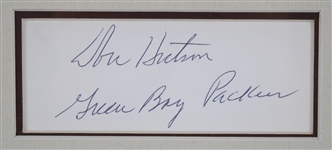 Don Hutson
Green Bay Packers